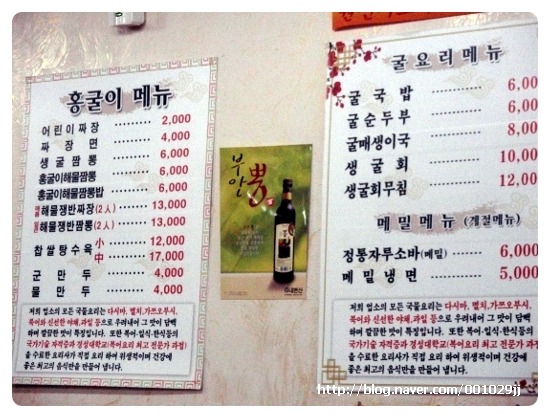 홍굴이 메뉴
어린이짜장 2,000
짜장면 4,000
생굴짬뽕 6,000
홍굴이해물짬뽕 6,000
홍굴이해물짬뽕밥 6,000
해물쟁반짜장(2人) 13,000
해물쟁반짬뽕(2人) 13,000
찹쌀탕수육 小 12,000
中 17,000
군만두 4,000
물만두 4,000
저희 업소의 모든 국물요리는 다시마, 멸치, 가쯔오부시,
북어와 신선한 야채, 과일 등으로 우려내어 그 맛이 담백
하며 깔끔한 맛이 특징입니다. 또한 복어·일식·한식등의
국가기술 자격증과 경성대학교(복어요리 최고 전문가 과정)
을 수료한 요리사가 직접 요리 하여 위생적이며 건강에
좋은 최고의 음식만을 만들어 냅니다.
부안
뽕
굴요리메뉴
굴국밥 6,00
굴순두부 6,00
굴매생이국 8,00
생굴회 10,00
생굴회무침 12,00
메밀메뉴 (계절메뉴)
정통자루소바(메밀) 6,000
메밀냉면 5,000
저희 업소의 모든 국물요리는 다시마, 멸치, 가쯔오부시,
북어와 신선한 야채, 과일 등으로 우려내어 그 맛이 담백
하며 깔끔한 맛이 특징입니다. 또한 복어·일식·한식등의
국가기술 자격증과 경성대학교(복어요리 최고 전문가 과
을 수료한 요리사가 직접 요리 하여 위생적이며 건강에
좋은 최고의 음식만을 만들어 냅니다.
http://blog.naver.com/001029jj